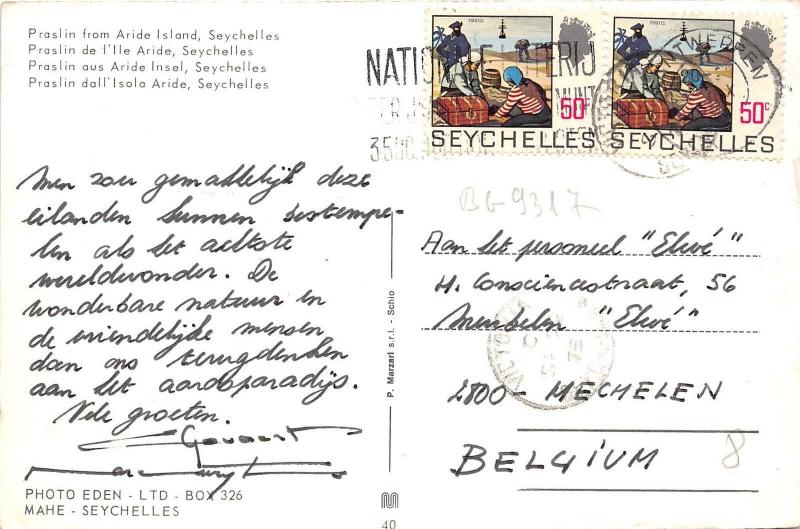 Praslin from Aride Island, Seychelles
Praslin de l'Ile Aride, Seychelles
Praslin aus Aride Insel, Seychelles
Praslin dall'Isola Aride, Seychelles
PIRATES
PIRATES
50c
50c
SEYCHELLES
SEYCHELLES
ANTWERPEN
BG-9317
Men zou gemakkelijk deze
eilanden kunnen bestempe-
len als het achtste
wereldwonder. De
wonderbare natuur en
de vriendelijke mensen
doen ons terugdenken
aan het aardsparadijs.
Vele groeten.
Govaert
Aan het personeel "Elvé"
H. Consciencestraat, 56
Meubelen "Elvé"
2800 - MECHELEN
BELGIUM
8
VICTORIA
P. Marzari s.r.l. - Schio
PHOTO EDEN - LTD - BOX 326
MAHE - SEYCHELLES
40